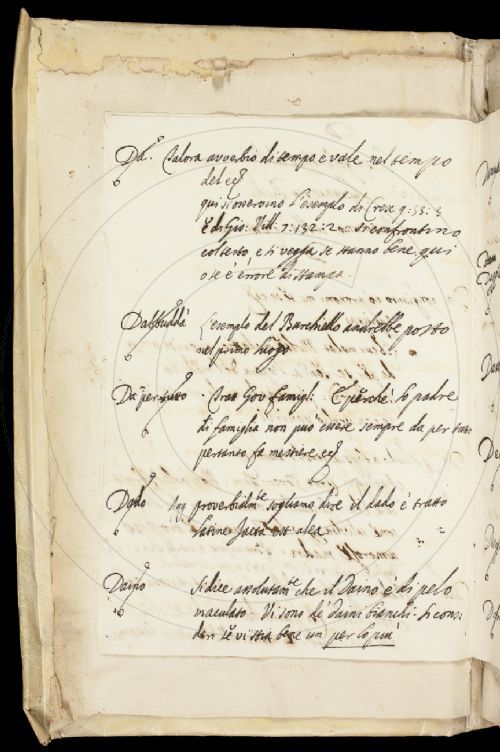 Da. Talora avverbio di tempo e vale nel tempo
del ec.
qui si osservino l'esempio di Cresc. 9: 55: 3
e di Gio: Vill: 7: 132: 2 si confrontino
col testo, e si vegga se stanno bene qui
o se è errore di stampa.
L'esempio del Burchiello andrebbe posto
nel primo luogo
Da per tutto. Trat. Gov. famigl: E perchè lo padre
di famiglia non può essere sempre da per tutto
pertanto fa mestiere ec.
Dado Agg. proverbialm.te sogliamo dire il dado è tratto
Latine Jacta est alea
Daino Si dice assolutam.te che il Daino è di pelo
maculato. Vi sono de' daini bianchi. Si consi
deri se vi stia bene un per lo più